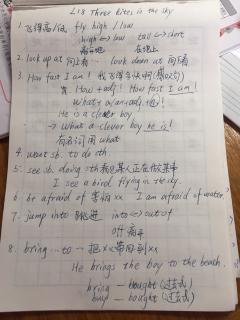 L18 Three kites in the sky
1. 飞得高/低 fly high / low
high ↔ low tall ↔ short
离地 在地上
2. look up at 向上看 look down at 向下看
3. How fast I am! 我飞得多快啊!(感叹句)
How + adj! How fast I am!
What + a/an + adj
He is a clever boy
→ What a clever boy he is!
有名词用 what
4. want sb. to do sth
5. see sb. doing sth 看见某人正在做某事
I see a bird flying in the sky.
6. be afraid of 害怕 xx I am afraid of water.
7. jump into 跳进 into ↔ out of
off 离开
8. bring ... to → 把 xx 带回到 xx
He brings the boy to the beach.
bring — brought (过去式)
buy — bought (过去式)